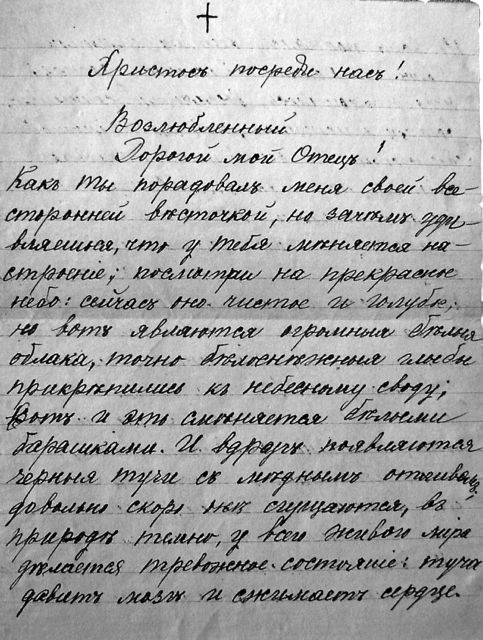 Христосъ посреди насъ!
Возлюбленный
Дорогой мой Отецъ!
Какъ ты порадовалъ меня своей все-
сторонней вѣсточкой, но зачѣмъ уди-
вляешься, что у тебя мѣняется на-
строеніе; посмотри на прекрасное
небо: сейчасъ оно чистое и голубое,
но вотъ являются огромныя бѣлыя
облака, точно бѣлоснѣжныя глыбы
прикрѣпились къ небесному своду;
вотъ и это смѣняется бѣлыми
барашками. И вдругъ появляются
черныя тучи съ мѣднымъ отливомъ,
довольно скоро онѣ сгущаются, въ
природѣ темно, у всего живого міра
дѣлается тревожное состояніе: туча
давитъ мозгъ и сжимаетъ сердце.